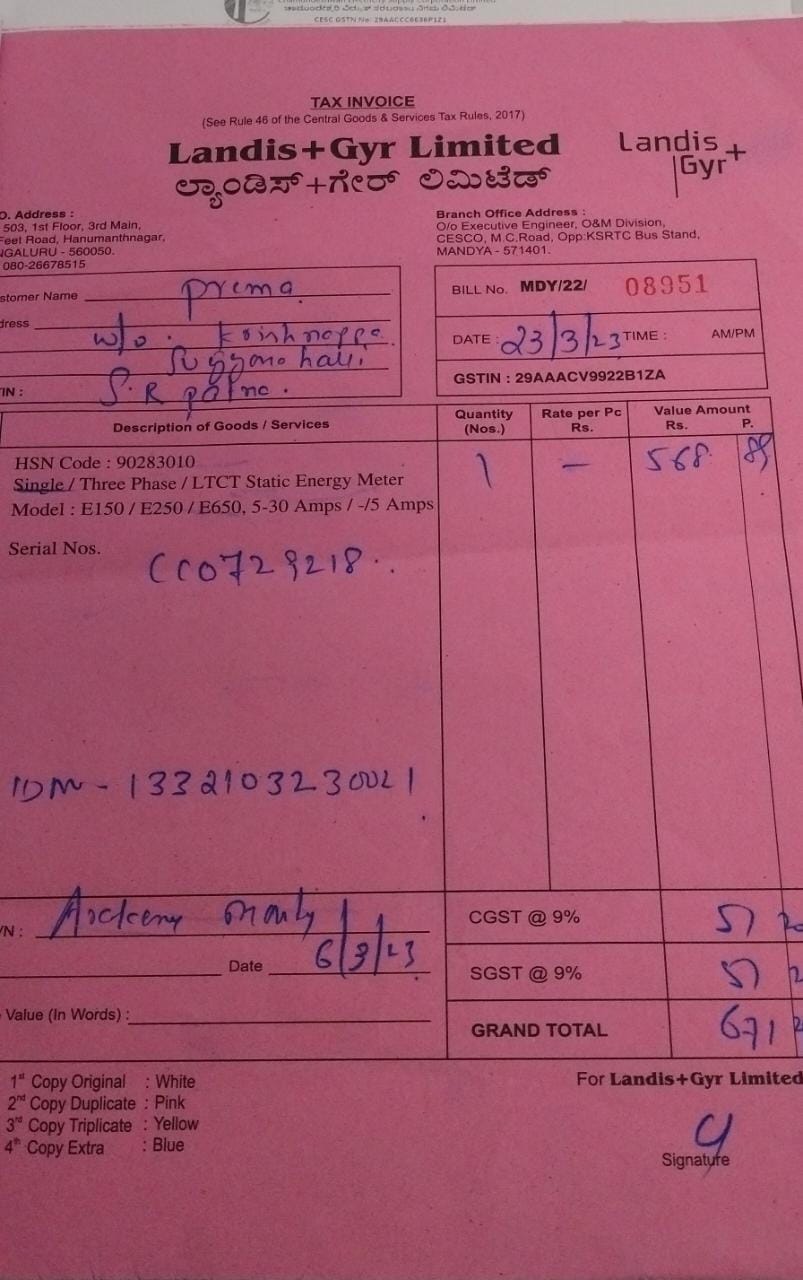 CESC GSTN No: 29AACCC6636P1Z1
TAX INVOICE
(See Rule 46 of the Central Goods & Services Tax Rules, 2017)
Landis+Gyr Limited
ಲ್ಯಾಂಡಿಸ್+ಗೇರ್ ಲಿಮಿಟೆಡ್
Landis+
Gyr
O. Address :
503, 1st Floor, 3rd Main,
Feet Road, Hanumanthnagar,
NGALURU - 560050.
080-26678515
Branch Office Address :
O/o Executive Engineer, O&M Division,
CESCO, M.C.Road, Opp:KSRTC Bus Stand,
MANDYA - 571401.
stomer Name prema
dress w/o. Krishnappa
halli
IN : S.R patna.
BILL No. MDY/22/ 08951
DATE : 23/3/23 TIME : AM/PM
GSTIN : 29AAACV9922B1ZA
Description of Goods / Services
Quantity (Nos.)
Rate per Pc Rs.
Value Amount Rs. P.
HSN Code : 90283010
Single / Three Phase / LTCT Static Energy Meter
Model : E150 / E250 / E650, 5-30 Amps / -/5 Amps
1 — 568. 89
Serial Nos.
CC0729218..
IDM - 1332103230021
/N :
Date 6/3/23
Value (In Words) :
CGST @ 9% 51
SGST @ 9% 51
GRAND TOTAL 671
1st Copy Original : White
2nd Copy Duplicate : Pink
3rd Copy Triplicate : Yellow
4th Copy Extra : Blue
For Landis+Gyr Limited
Signature